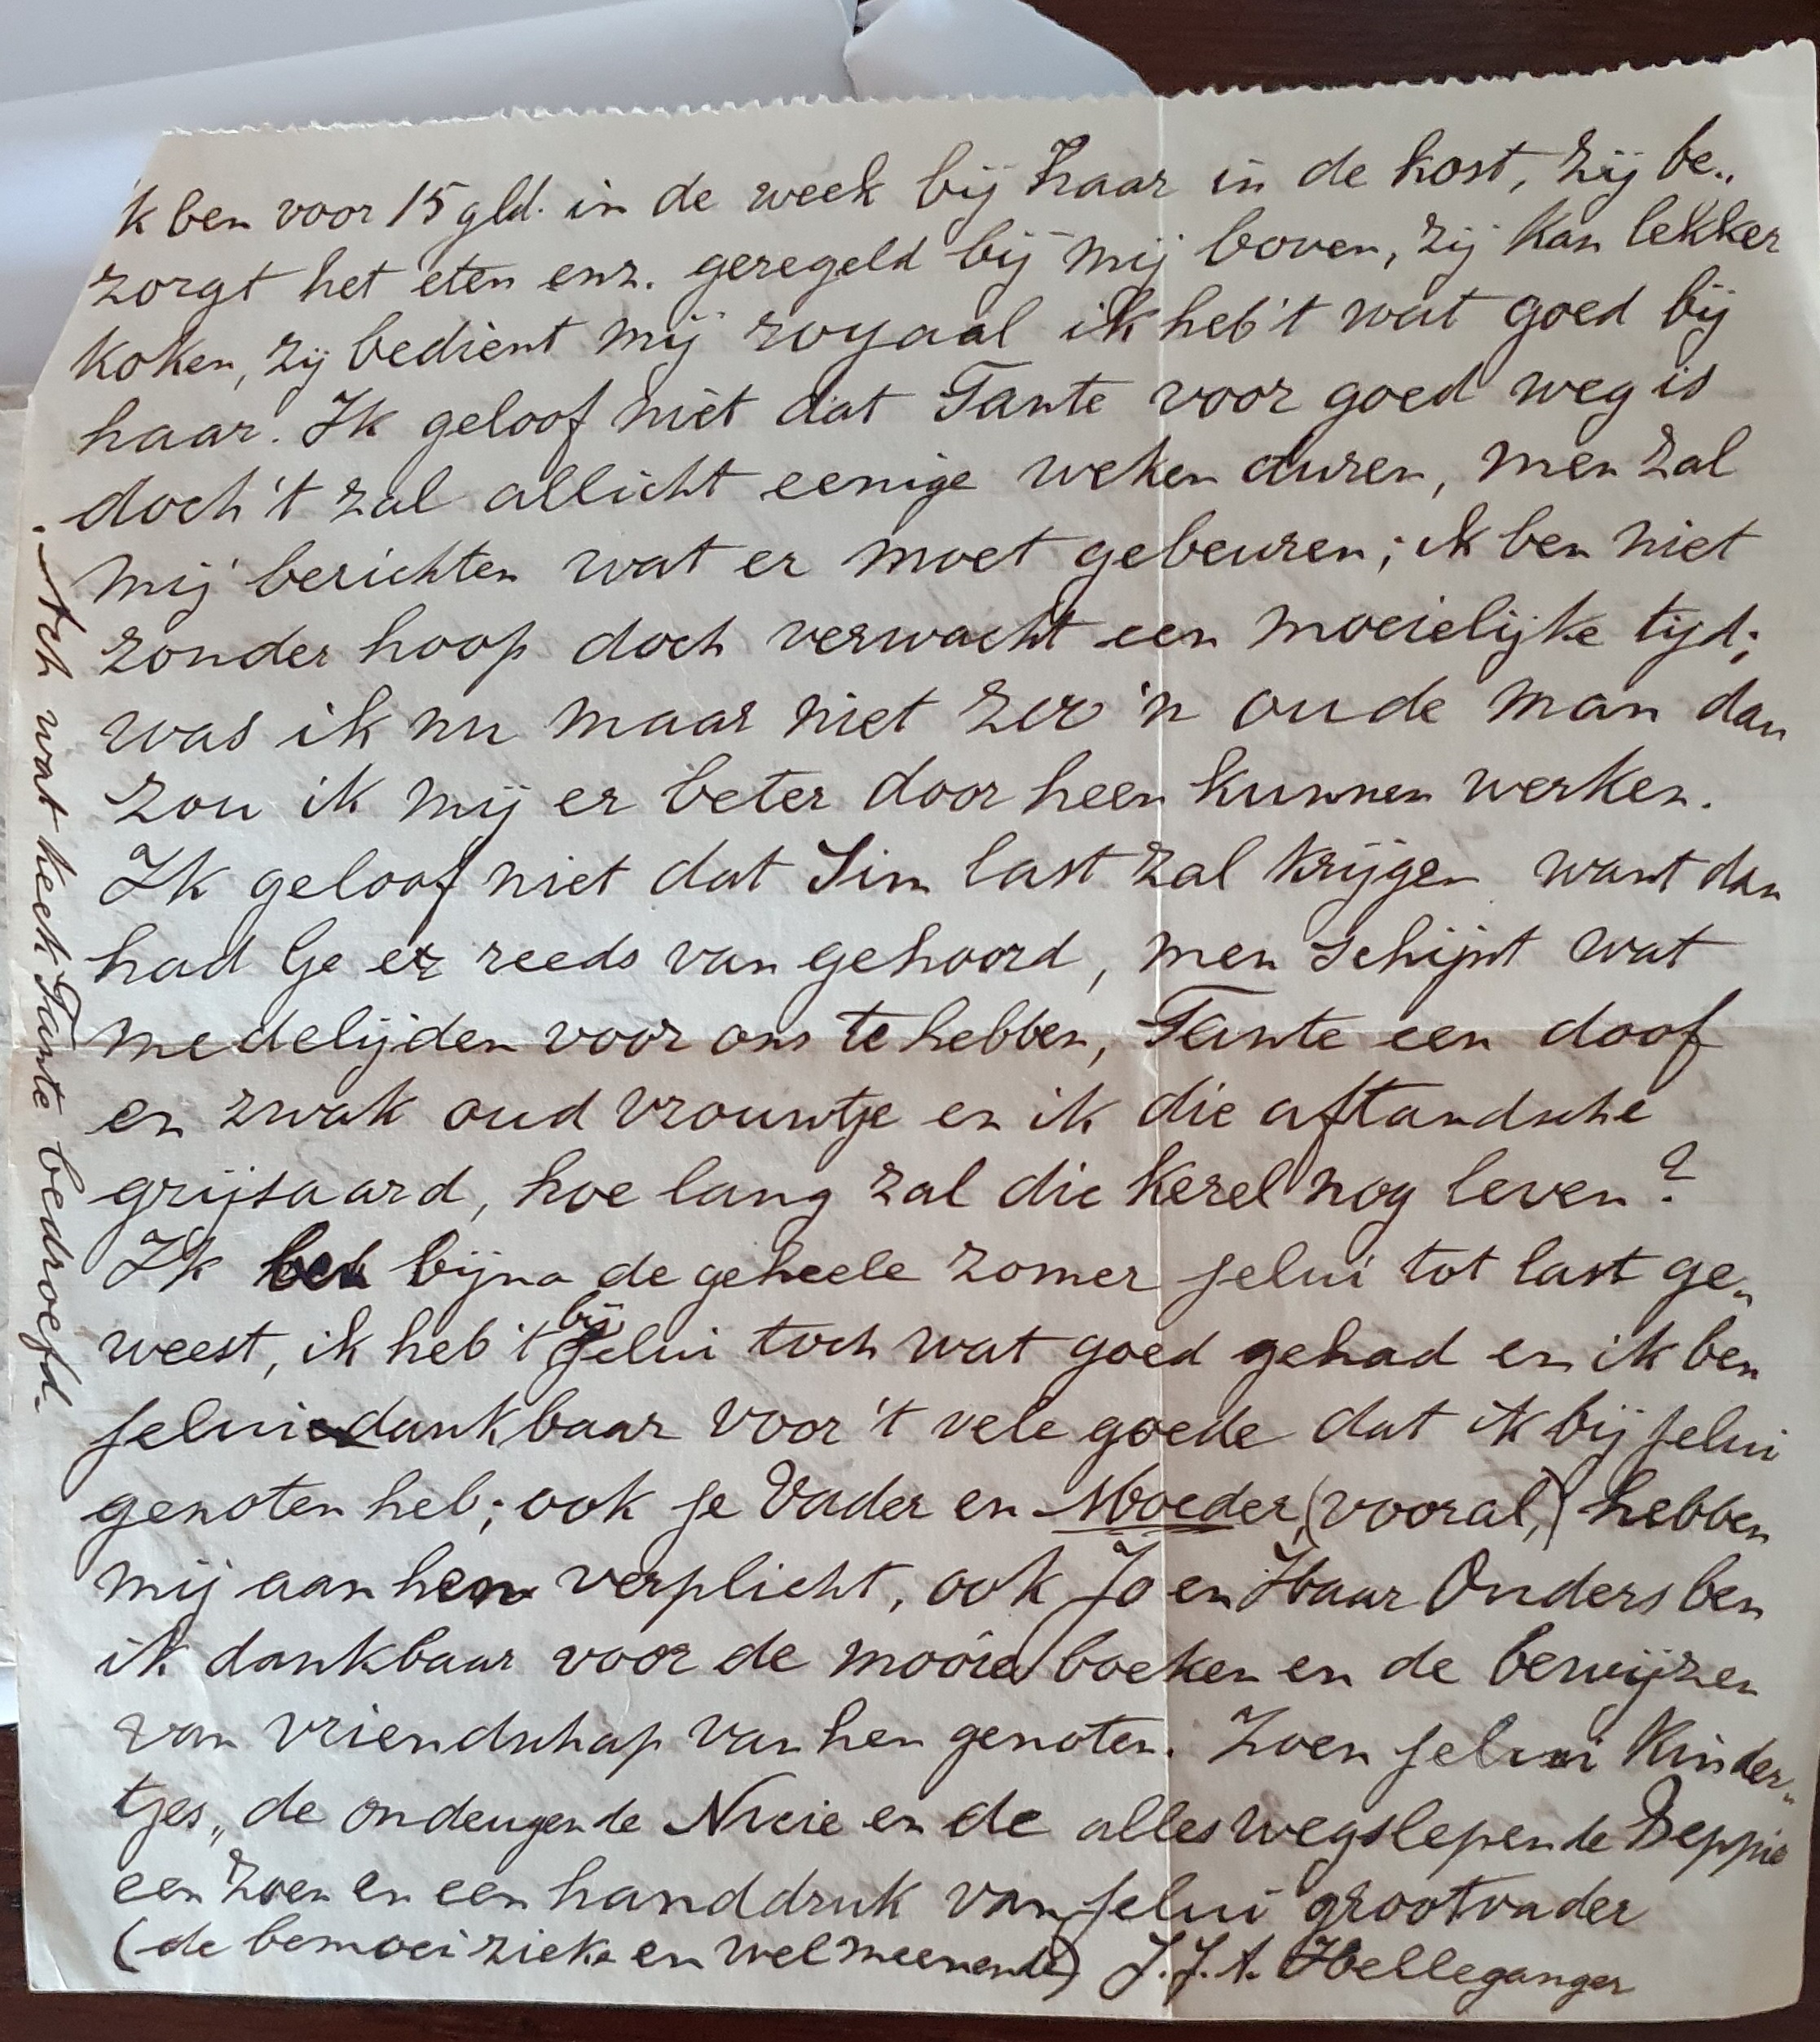 k ben voor 15 gld. in de week bij haar in de kost, zij be„
zorgt het eten enz. geregeld bij mij boven, zij kan lekker
koken, zij bedient mij royaal ik heb 't wat goed bij
haar. Ik geloof niet dat Tante voor goed weg is
doch 't zal allicht eenige weken duren, men zal
mij berichten wat er moet gebeuren; ik ben niet
zonder hoop doch verwacht een moeielijke tijd;
was ik nu maar niet zoo 'n oude man dan
zou ik mij er beter door heen kunnen werken.
Ik geloof niet dat Sim last zal krijgen want dan
had Ge er reeds van gehoord, men schijnt wat
medelijden voor ons te hebben, Tante een doof
en zwak oud vrouwtje en ik die aftandsche
grijsaard, hoe lang zal die kerel nog leven?
Ik ben bijna de geheele zomer jelui tot last ge„
weest, ik heb 't bij jelui toch wat goed gehad en ik ben
jelui dankbaar voor 't vele goede dat ik bij jelui
genoten heb; ook je Vader en Moeder, (vooral,) hebben
mij aan hen verplicht, ook Jo en Haar Ouders ben
ik dankbaar voor de mooie boeken en de bewijzen
van vriendschap van hen genoten. Zoen jelui kinder„
tjes„ de ondeugende en de alles wegslepende Beppie
een zoen en een handdruk van jelui grootvader
(de bemoeizieke en welmeenende) J.J.A. Helleganger
Ach wat keek Tante bedroefd.